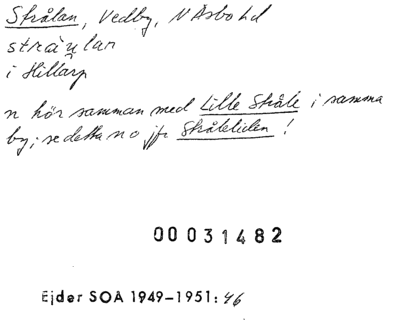 Strålan, Vedby, N Åsbo hd
strä̀u̯lan
i Hillarp
n hör samman med Lille Stråle i samma
by; se detta no jfr Stråleliden!
00031482
Ejder SOA 1949–1951: 46